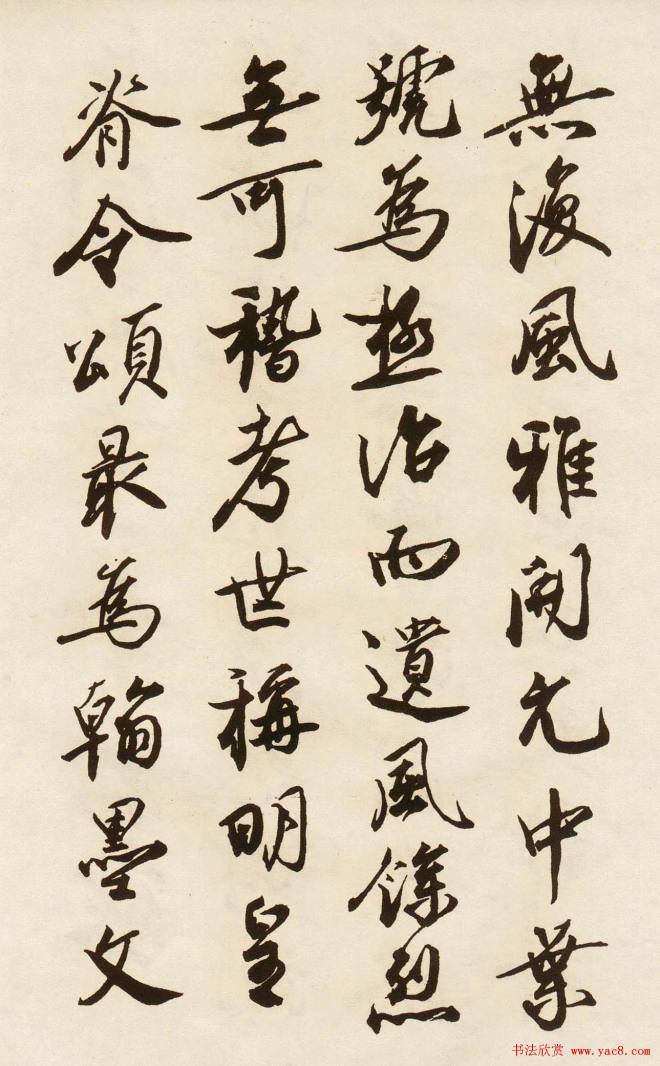 無復風雅開元中葉
號為極治而遺風餘烈
無可稽考世稱明皇
脊令頌最為翰墨文
书法欣赏 www.yac8.com